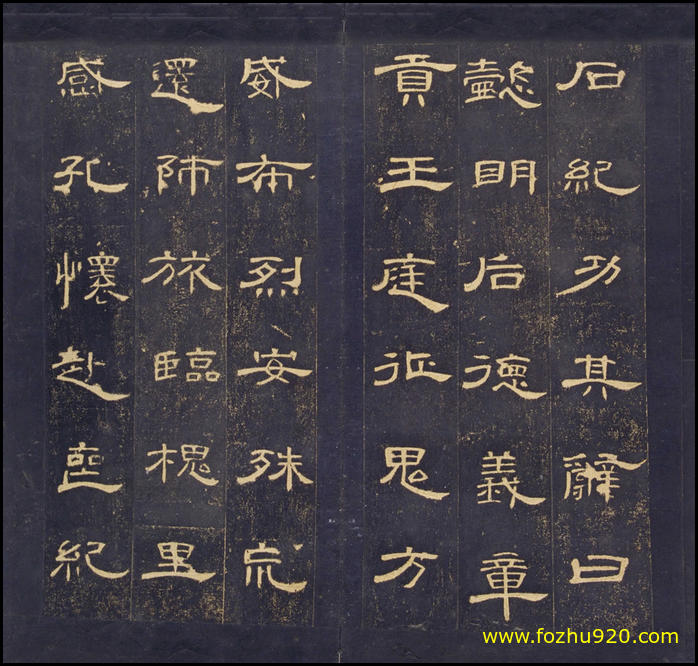 石紀功其辭曰
懿明后德義章
貢王庭征鬼方
威布烈安殊巟
還師旅臨槐里
感孔懷赴喪紀
www.fozhu920.com